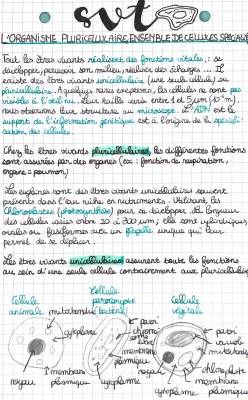 svt
L'ORGANISME PLURICELLULAIRE, ENSEMBLE DE CELLULES SPÉCIALISÉES
Tout les êtres vivants réalisent des fonctions vitales : se
développer, percevoir son milieu, réaliser des échanges ... Il
existe des êtres vivants unicellulaire (une seule cellule) ou
pluricellulaire. À quelques rares exceptions, les cellules ne sont pas
visibles à l'œil nu, leur taille varie entre 1 et 5 µm (10⁻⁶ m),
nous observons leur structure au microscope. L'ADN est le
support de l'information génétique est à l'origine de la spéciali-
sation des cellules.
Chez les êtres vivants pluricellulaires, les différentes fonctions
sont assurées par des organes (ex : fonction de respiration,
organe : poumon)
Les euglènes sont des êtres vivants unicellulaires souvent
présents dans l'eau riche en nutriments. Utilisant les
Chloroplastes (photosynthèse) pour se développer,
la longueur
des cellules varie entre 20 à 200 µm ; elles sont cylindriques
ovales ou fusiformes avec un flagelle unique qui leur
permet de se déplacer.
Les êtres vivants unicellulaires assurent toute les fonctions
au sein d'une seule cellule contrairement aux pluricellulaire
Cellule
animale
mitochondrie
cytoplasme
noyau
membrane
plasmique
Cellule
bactérie
membrane
plasmique
cytoplasme
Cellule
végétale
paroi
vacuole
chloroplaste
membrane
plasmique
noyau